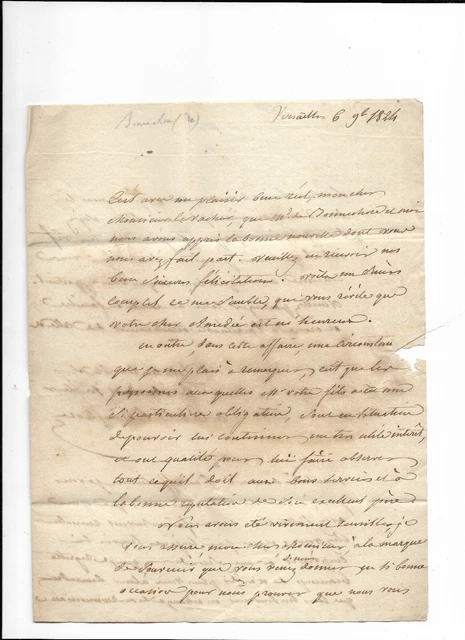 Versailles 6 9e 1824
C'est avec un plaisir bien réel, mon cher
Monsieur le Vacher, que Mr de Bonnechose et moi
nous avons appris la bonne nouvelle dont vous
nous avez fait part. Veuillez en recevoir nos
bien sincères félicitations. voila un succès
complet ce me semble, que vous
votre cher Amédée est heureux.
en outre, dans cette affaire, une circonstance
que je me plais à remarquer, c'est que les
personnes auxquelles Mr votre fils a eu une
si particulière obligation, sont en situation
de pouvoir lui continuer un très utile intérêt,
et ont qualité pour lui faire observer
tout ce qu'il doit aux bons services et à
la bonne réputation de son excellent père
Nous avons été vivement sensibles, je
vous assure mon cher Monsieur à la marque
de souvenir que vous venez de nous donner
occasion pour nous prouver que nous vous